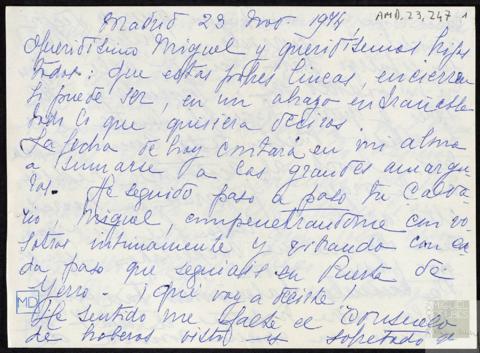 Madrid 23 Nov 1974
AMD, 23, 247 1
Queridísimo Miguel y queridísimos hijos
todos: Que estas pobres líneas, encierren
si puede ser, en un abrazo entrañable
todo lo que quisiera deciros.
La fecha de hoy contará en mi alma
a sumarse a las grandes amargu-
ras. He seguido paso a paso tu Calva-
rio, Miguel, compenetrandome con vo-
sotros intimamente y vibrando con ca-
da paso que seguiais en Puerta de
Hierro. ¡Qué voy a decirte!
He sentido me falte el consuelo
de haberos visto y
MD